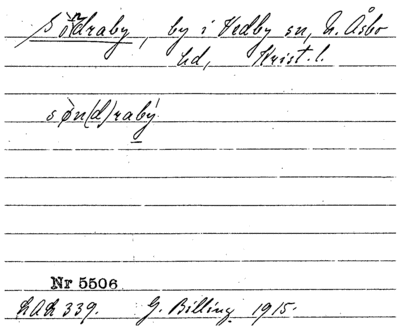 Södraby, by i Vedby sn, N. Åsbo
hd, Krist. l.
sø̀n(d)rabý
Nr 5506
LAL 339. G. Billing 1915.